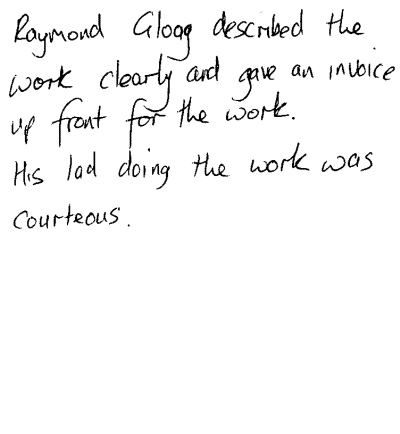 Raymond Glogg described the
work clearly and gave an invoice
up front for the work.
His lad doing the work was
courteous.